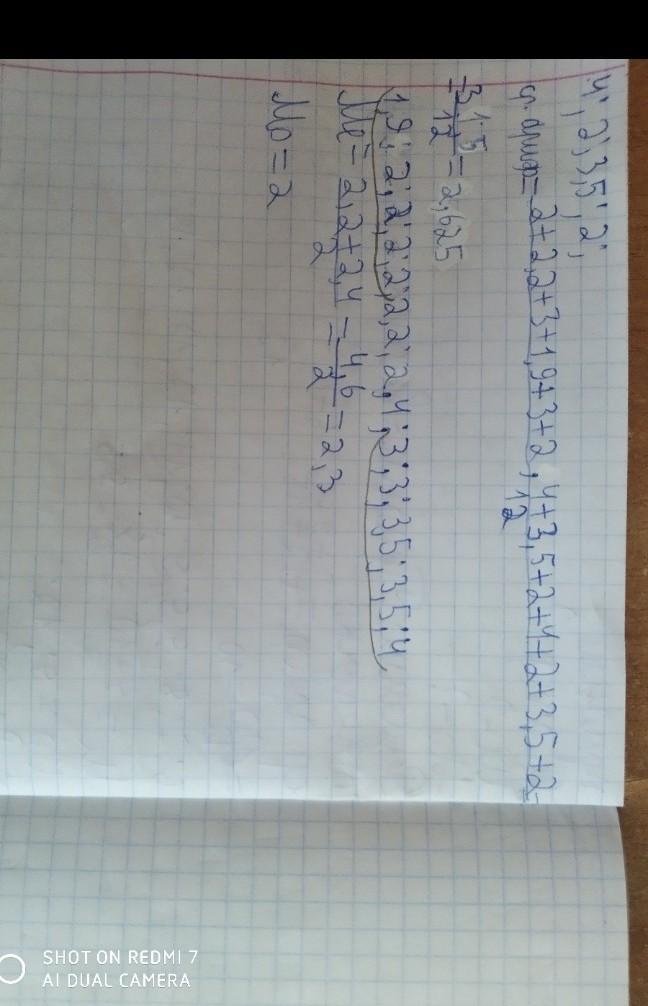 4; 2; 3,5; 2;
ср. ариф = 2+2,2+3+1,9+3+2,4+3,5+2+4+2+3,5+2 / 12 =
= 31,5 / 12 = 2,625
1,9; 2; 2; 2; 2; 2,2; 2,4; 3; 3; 3,5; 3,5; 4
Me = 2,2+2,4 / 2 = 4,6 / 2 = 2,3
Mo = 2
SHOT ON REDMI 7
AI DUAL CAMERA